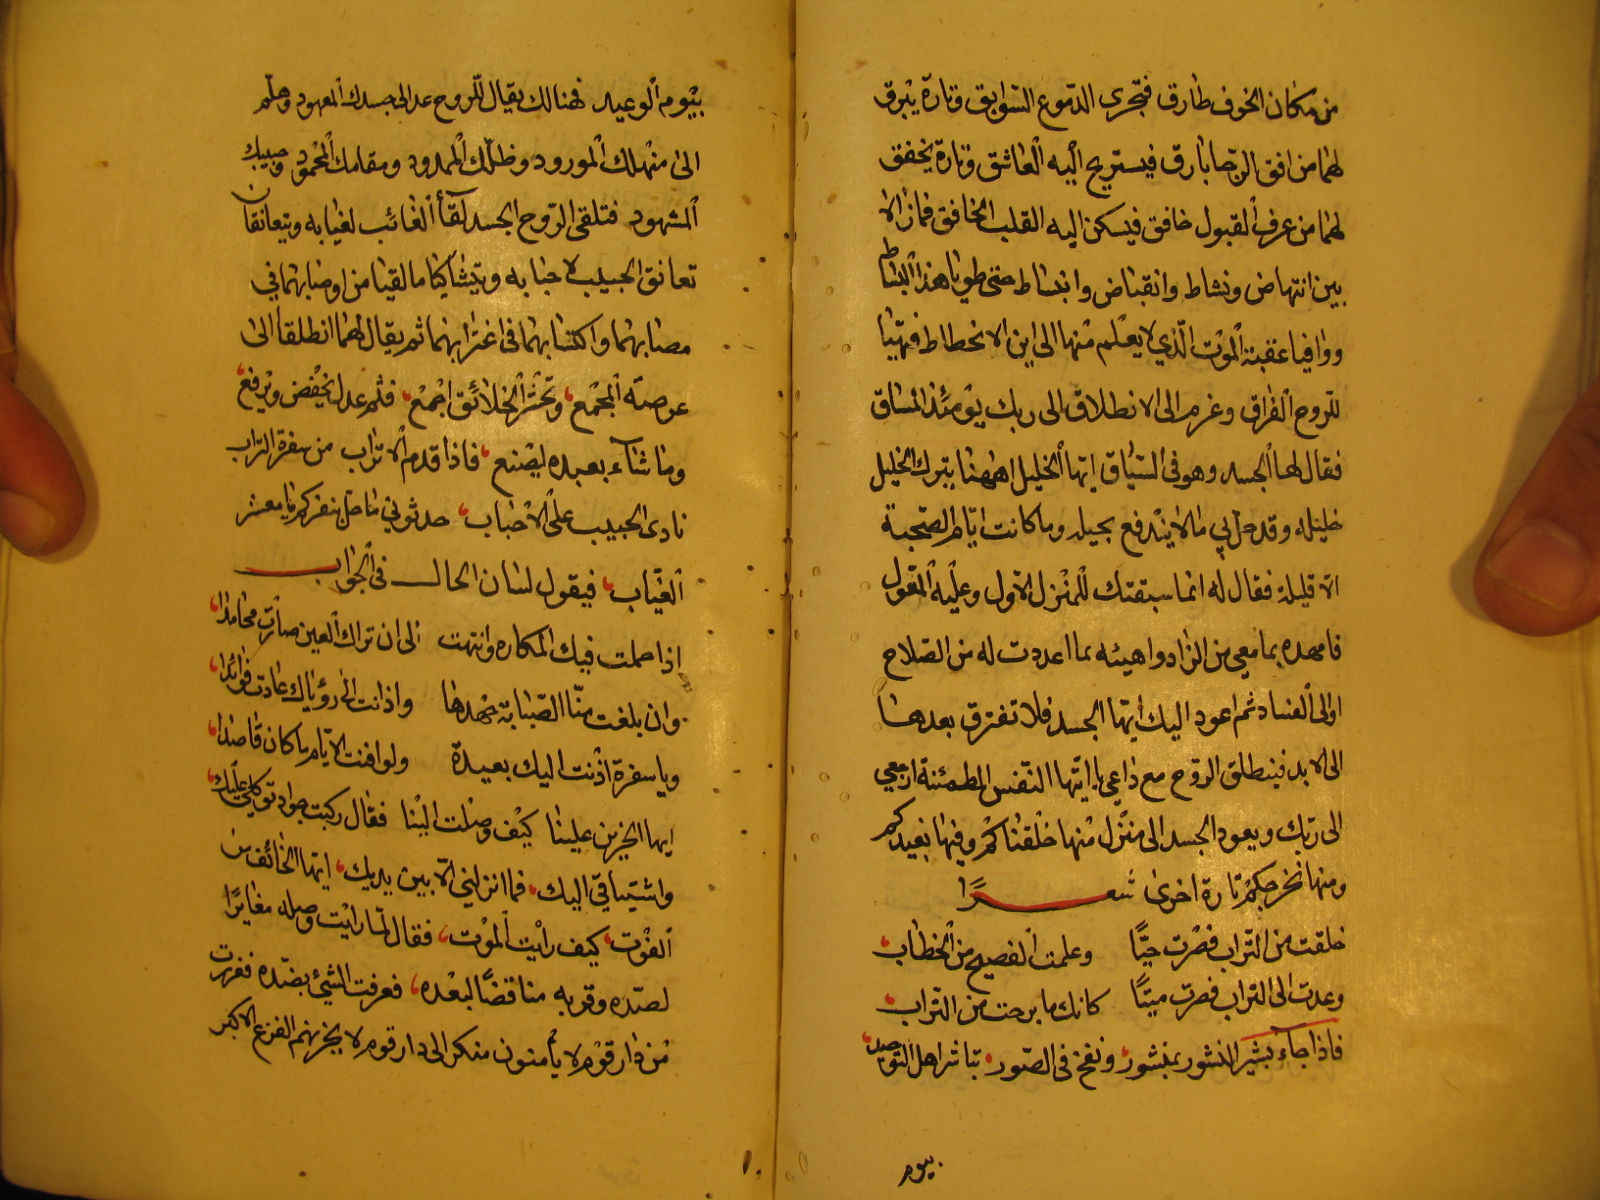 من مكان الخوف طارق فتجرى الدّموع السّوابق وتارة يبرق
لهما من افق الرّجا بارق فيستريح اليه العاشق وتارة يخفق
لهما من عرف القبول خافق فيسكن اليه القلب الخافق فمازالا
بين انتهاض ونشاط وانقباض وانبساط حتى طويا هذا البساط
ووافيا عقبة الموت الّذي لا يعلم منها الى اين الانحطاط فتهيّا
للروح الفراق وعزم الى الانطلاق الى ربك يومئذ المساق
فقال لها الجسد وهو في السّياق ايّها الخليل اههنا يترك الخليل
خليله وقد حلّ بي ما لا يندفع بحيله وما كانت ايّام الصّحبة
الا قليلة فقال له انما سبقتك للمنزل الاول وعليه المعوّل
فامهده بما معي من الزاد واهيئه بما اعددت له من الصلاح
او الى الفساد ثم اعود اليك ايّها الجسد فلا تفترق بعدها
الى الابد فينطلق الروح مع داعي يا ايّتها النّفس المطمئنة ارجعي
الى ربّك ويعود الجسد الى منزل منها خلقناكم وفيها نعيدكم
ومنها نخرجكم تارة اخرى شعـرًا
خلقت من التّراب فصرت حيّا وعلمت الفصيح من الخطاب
وعدت الى التراب فصرت ميتًا كانك ما برحت من التّراب
فاذا جاء بشير النشور بمنشور ونفخ في الصّور تباشر اهل التوحيد
بيوم
بيوم الوعيد فهنالك يقال للروح عد الى جسدك المعهود وهلم
الى منهلك المورود وظلّك الممدود ومقامك المحمود وحبيبك
المشهود فتلقى الرّوح الجسد لقاء الغائب لغيابه ويتعانقان
تعانق الحبيب لاحبابه ويتشاكيا ما لقيا من اوصابهما في
مصابهما واكتسابهما في اغترابهما ثم يقال لهما انطلقا الى
عرصة المجمع وتحشر الخلائق اجمع فثم عدل يخفض ويرفع
وما شاء بعبده ليصنع فاذا قدم الاتراب من سفرة التراب
نادى الحبيب على الاحباب حدثوني ما حل بنفركم يا معشر
الغيّاب فيقول لسان الحال في الجواب
اذا حملت فيك المكاره وانتهت الى ان تراك العين صارت محامدا
وان بلغت منّا الصّبابة جهدها واذانت الى رؤياك عادت فوائدا
ويا سفرة اذنت اليك بعيدة ولو افنت الايّام ما كان قاصدا
ايها الحزين علينا كيف وصلت الينا فقال ركبت جواد توكلي عليك
واشتياقي اليك فما انزلني الّا بين يديك ايها الخائف من
الفوت كيف رايت الموت فقال لما رايت وصله مغايرًا
لصدّه وقربه مناقضًا لبعده فعرفت الشيئ بضدّه ففررت
من دار قوم لا يأمنون منكر الى دار قوم لا يحزنهم الفزع الاكبر